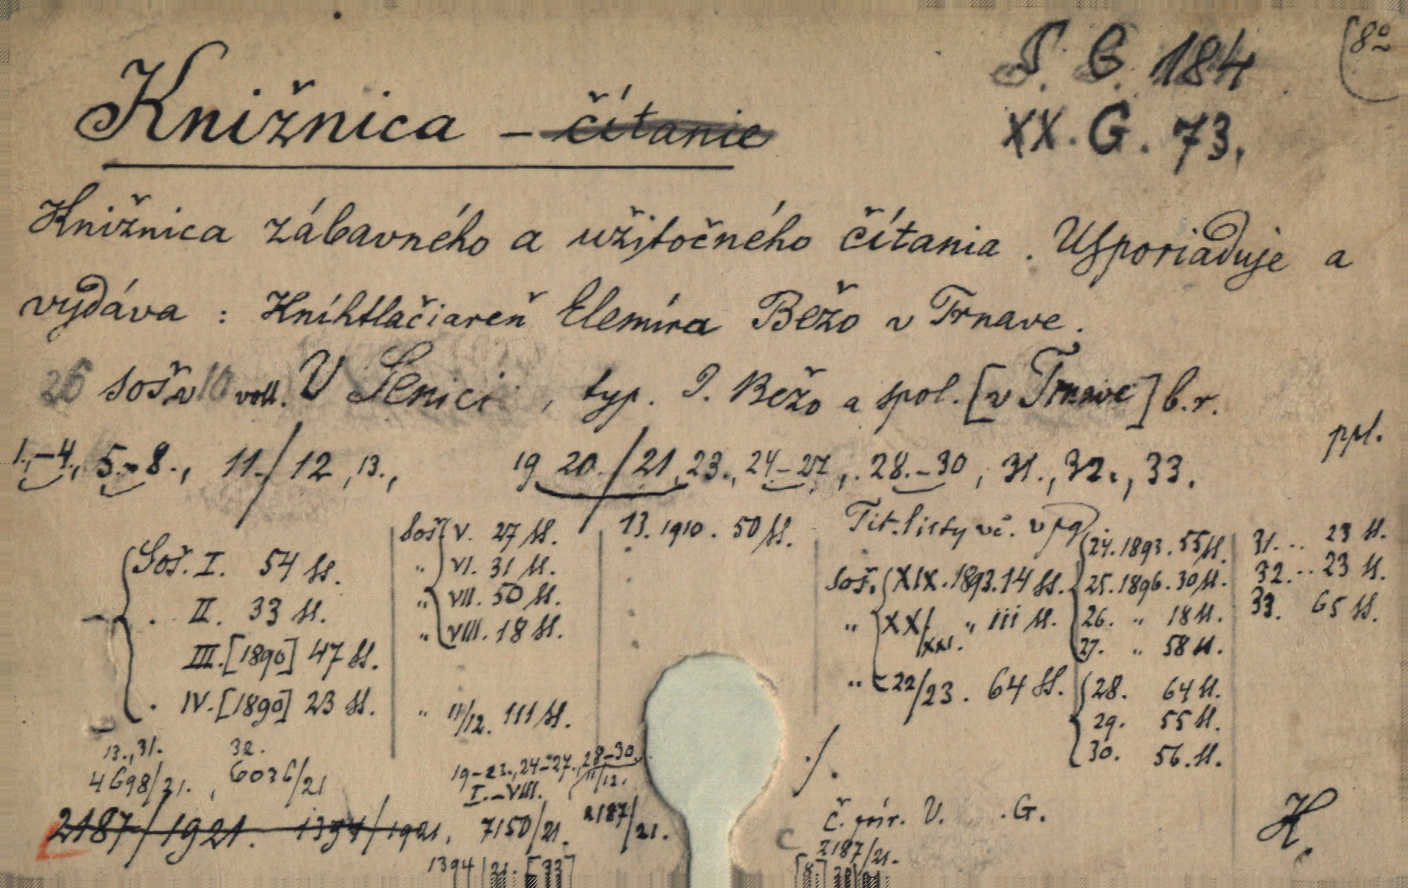 S. C. 184 8º
Knižnica – čítanie XX. G. 73.
Knižnica zábavného a užitočného čítania. Usporiaduje a
vydáva: Kníhtlačiareň Elemíra Bežo v Trnave.
26 soš. v 10 voll. V Senici, typ. J. Bežo a spol. [v Trnave] b.r.
ppl.
1.–4., 5.–8., 11./12, 13., 19 20./21, 23., 24–27, 28.–30, 31., 32., 33.
Soš. I. 54 ss. Soš. V. 27 ss. 13. 1910. 50 ss. Tit. listy vč. v pag. 24. 1893. 55 ss. 31. 23 ss.
II. 33 ss. " VI. 31 ss. soš. XIX. 1893. 14 ss. 25. 1896. 30 ss. 32. 23 ss.
III. [1890] 47 ss. " VII. 50 ss. " XX/XXI. " 111 ss. 26. " 18 ss. 33. 65 ss.
" VIII. 18 ss. 27. " 58 ss.
IV. [1890] 23 ss. " 11/12. 111 ss. " 22/23. 64 ss. 28. 64 ss.
29. 55 ss.
30. 56 ss.
13., 31. 32. 19–23., 24–27., 28–30
4698/21., 6036/21 I.–VIII. 11/12. ./.
2187/1921. 1394/1921. 7150/21. 2187/21. č. prír. U. G. H.
1394/21. [33] 2187/21.